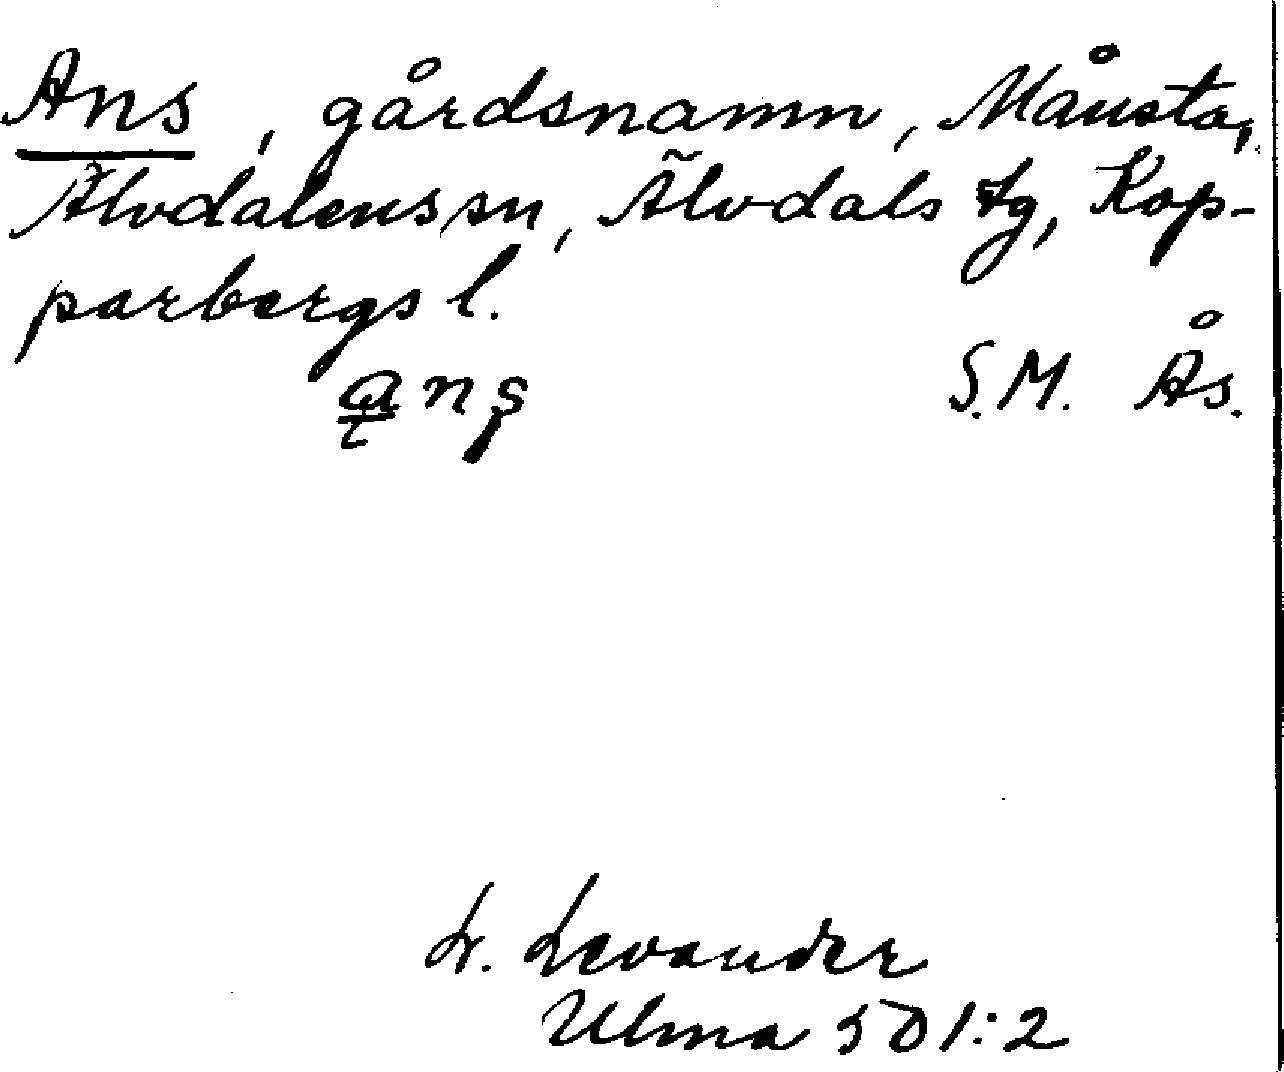 Ans, gårdsnamn, Månsta,
Älvdalens sn, Älvdals tg, Kop-
parbergs l.
ans S.M. Ås.
L. Levander
Ulma 501:2